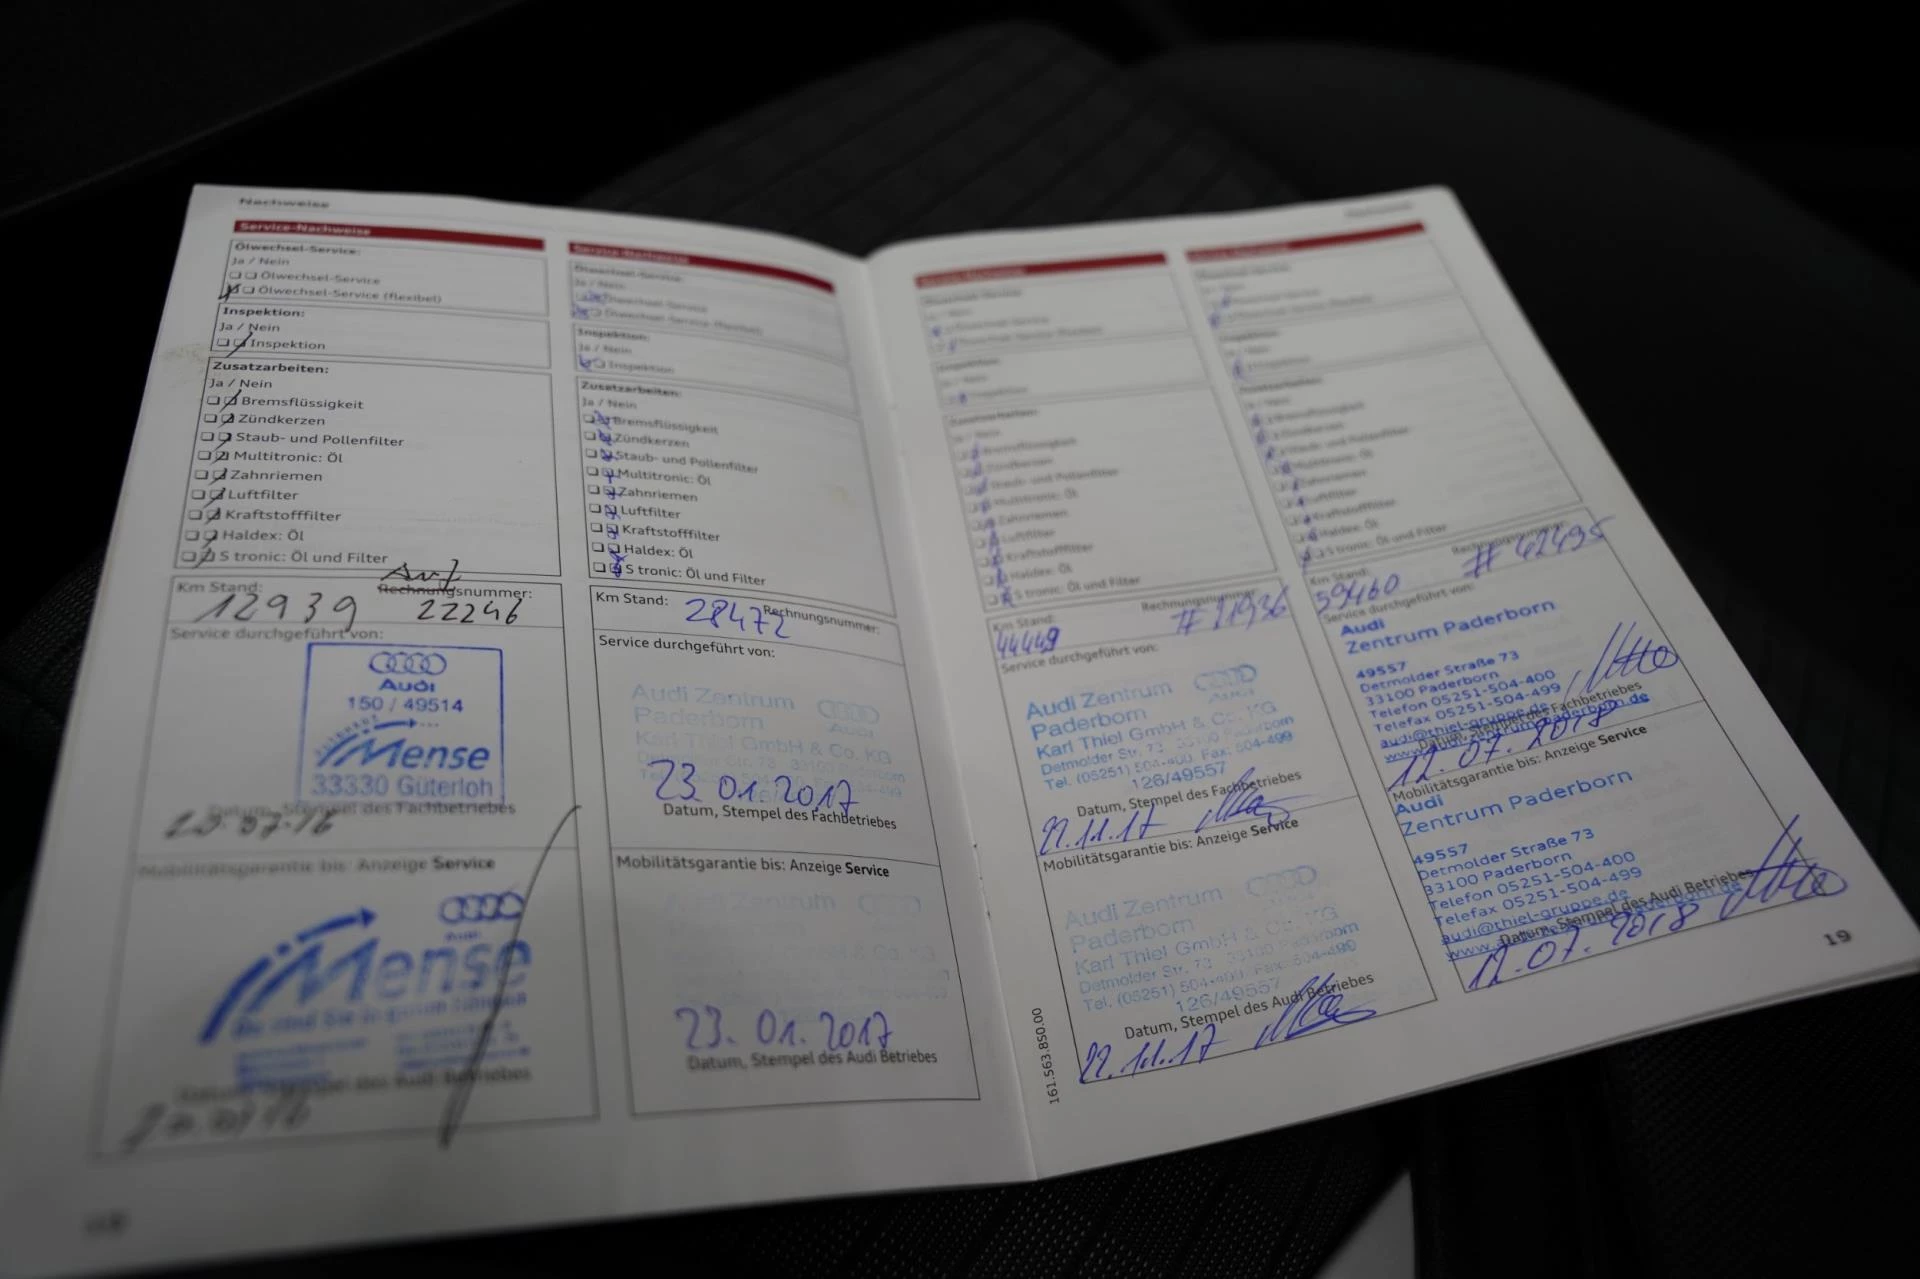 Nachweise
Service-Nachweise
Ölwechsel-Service:
Ja / Nein
Ölwechsel-Service
Ölwechsel-Service (flexibel)
Inspektion:
Ja / Nein
Inspektion
Zusatzarbeiten:
Ja / Nein
Bremsflüssigkeit
Zündkerzen
Staub- und Pollenfilter
Multitronic: Öl
Zahnriemen
Luftfilter
Kraftstofffilter
Haldex: Öl
S tronic: Öl und Filter
Km Stand:
Rechnungsnummer:
12939
22246
Service durchgeführt von:
Audi
150 / 49514
Mense
33330 Güterloh
Datum, Stempel des Fachbetriebes
Mobilitätsgarantie bis: Anzeige Service
Audi
Mense
Datum, Stempel des Audi Betriebes
Service-Nachweise
Ölwechsel-Service:
Ja / Nein
Ölwechsel-Service
Ölwechsel-Service (flexibel)
Inspektion:
Ja / Nein
Inspektion
Zusatzarbeiten:
Ja / Nein
Bremsflüssigkeit
Zündkerzen
Staub- und Pollenfilter
Multitronic: Öl
Zahnriemen
Luftfilter
Kraftstofffilter
Haldex: Öl
S tronic: Öl und Filter
Km Stand:
28472
Rechnungsnummer:
Service durchgeführt von:
Audi Zentrum
Paderborn
Audi
Karl Thiel GmbH & Co. KG
23.01.2017
Datum, Stempel des Fachbetriebes
Mobilitätsgarantie bis: Anzeige Service
23.01.2017
Datum, Stempel des Audi Betriebes
Service-Nachweise
Zusatzarbeiten:
Bremsflüssigkeit
Zündkerzen
Staub- und Pollenfilter
Multitronic: Öl
Zahnriemen
Luftfilter
Kraftstofffilter
Haldex: Öl
S tronic: Öl und Filter
Km Stand:
Rechnungsnummer
44449
Service durchgeführt von:
Audi Zentrum
Paderborn
Karl Thiel GmbH & Co. KG
Detmolder Str. 73 33100 Paderborn
Tel. (05251) 504-400 Fax: 504-499
126/49557
Datum, Stempel des Fachbetriebes
22.11.17
Mobilitätsgarantie bis: Anzeige Service
Audi Zentrum
Paderborn
Karl Thiel GmbH & Co. KG
Detmolder Str. 73 33100 Paderborn
Tel. (05251) 504-400 Fax: 504-499
126/49557
Datum, Stempel des Audi Betriebes
22.11.17
161.563.850.00
Bremsflüssigkeit
Zündkerzen
Staub- und Pollenfilter
Multitronic: Öl
Zahnriemen
Luftfilter
Kraftstofffilter
Haldex: Öl
S tronic: Öl und Filter
Km Stand:
Rechnungsnummer:
59460
# 42495
Service durchgeführt von:
Audi
Zentrum Paderborn
49557
Detmolder Straße 73
33100 Paderborn
Telefon 05251-504-400
Telefax 05251-504-499
audi@thiel-gruppe.de
Datum, Stempel des Fachbetriebes
12.07.2018
Mobilitätsgarantie bis: Anzeige Service
Audi
Zentrum Paderborn
49557
Detmolder Straße 73
33100 Paderborn
Telefon 05251-504-400
Telefax 05251-504-499
audi@thiel-gruppe.de
Datum, Stempel des Audi Betriebes
12.07.2018
19